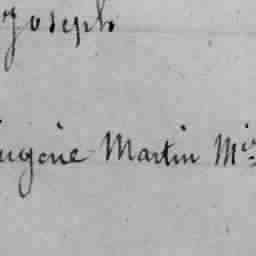 Joseph
Eugène Martin Mis